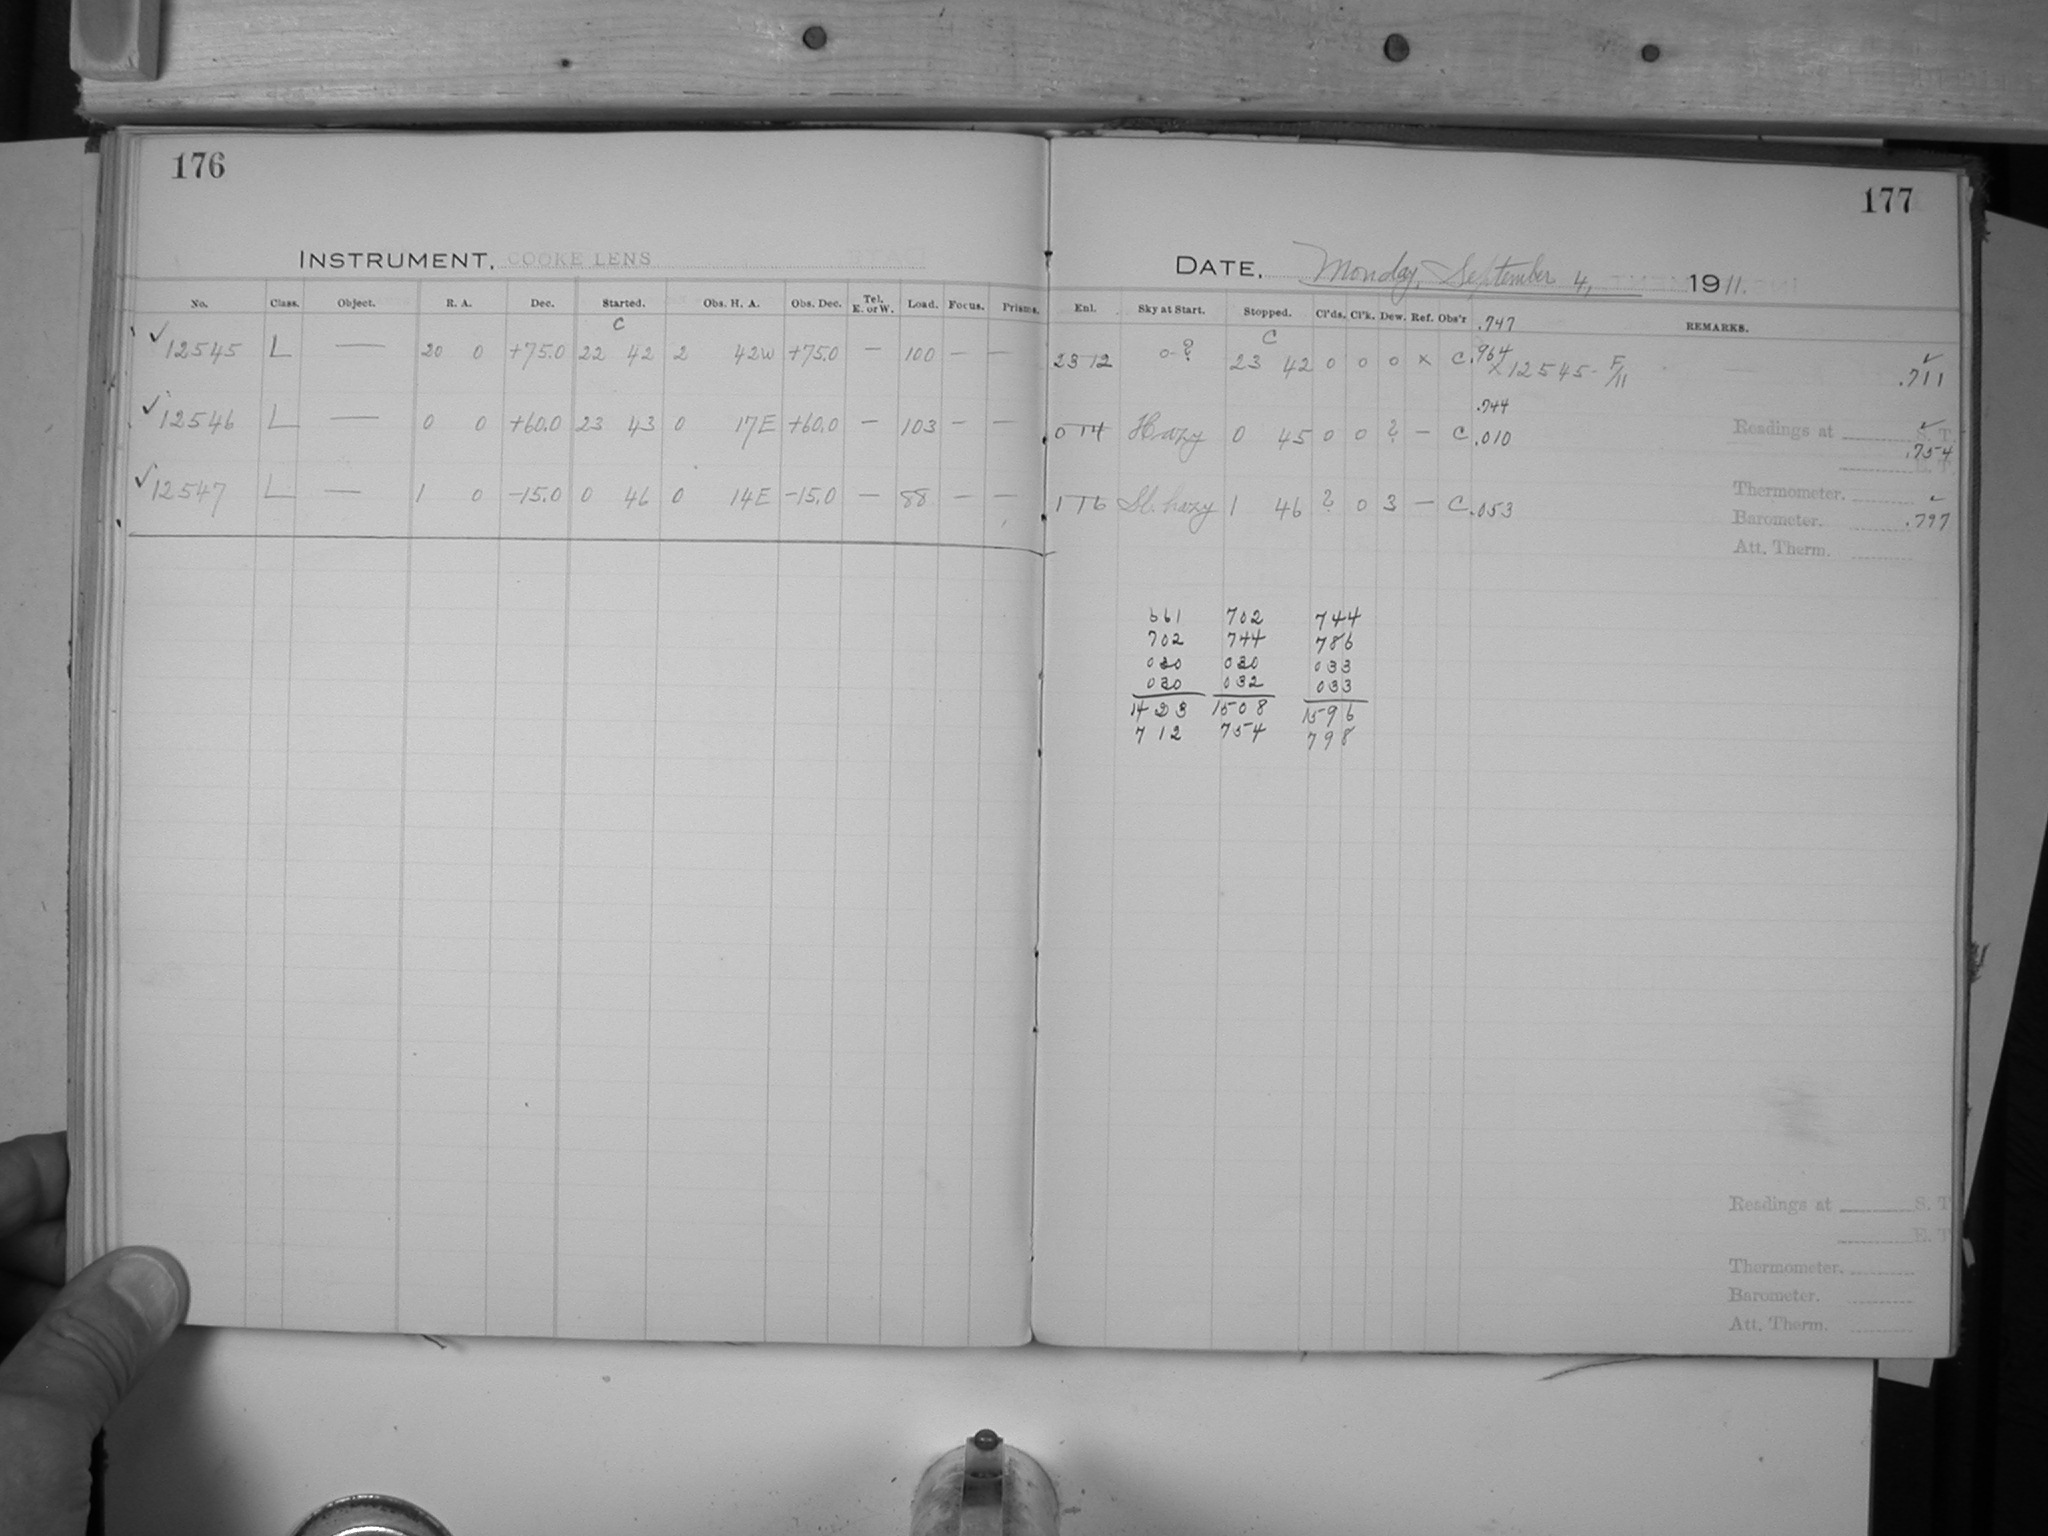 176
INSTRUMENT, COOKE LENS
No. Class. Object. R. A. Dec. Started. Obs. H. A. Obs. Dec. Tel. E. or W. Load. Focus. Prisms.
C
✓ 12545 L — 20 0 +75.0 22 42 2 42W +75.0 — 100 — —
✓ 12546 L — 0 0 +60.0 23 43 0 17E +60.0 — 103 — —
✓ 12547 L — 1 0 -15.0 0 46 0 14E -15.0 — 88 — —
177
DATE, Monday, September 4, 1911.
Enl. Sky at Start. Stopped. Cl'ds. Cl'k. Dew. Ref. Obs'r .747 REMARKS.
C
23 12 0-? 23 42 0 0 0 x C .964 x 12545- F/11 ✓ .711
.744
0 14 Hazy 0 45 0 0 ? — C .010 Readings at S. T
✓ .754
E. T
1 16 Sl. hazy 1 46 ? 0 3 — C .053 Thermometer. ✓
Barometer. .797
Att. Therm.
661 702 744
702 744 786
030 030 033
030 032 033
1423 1508 1596
712 754 798
Readings at S. T
E. T
Thermometer.
Barometer.
Att. Therm.